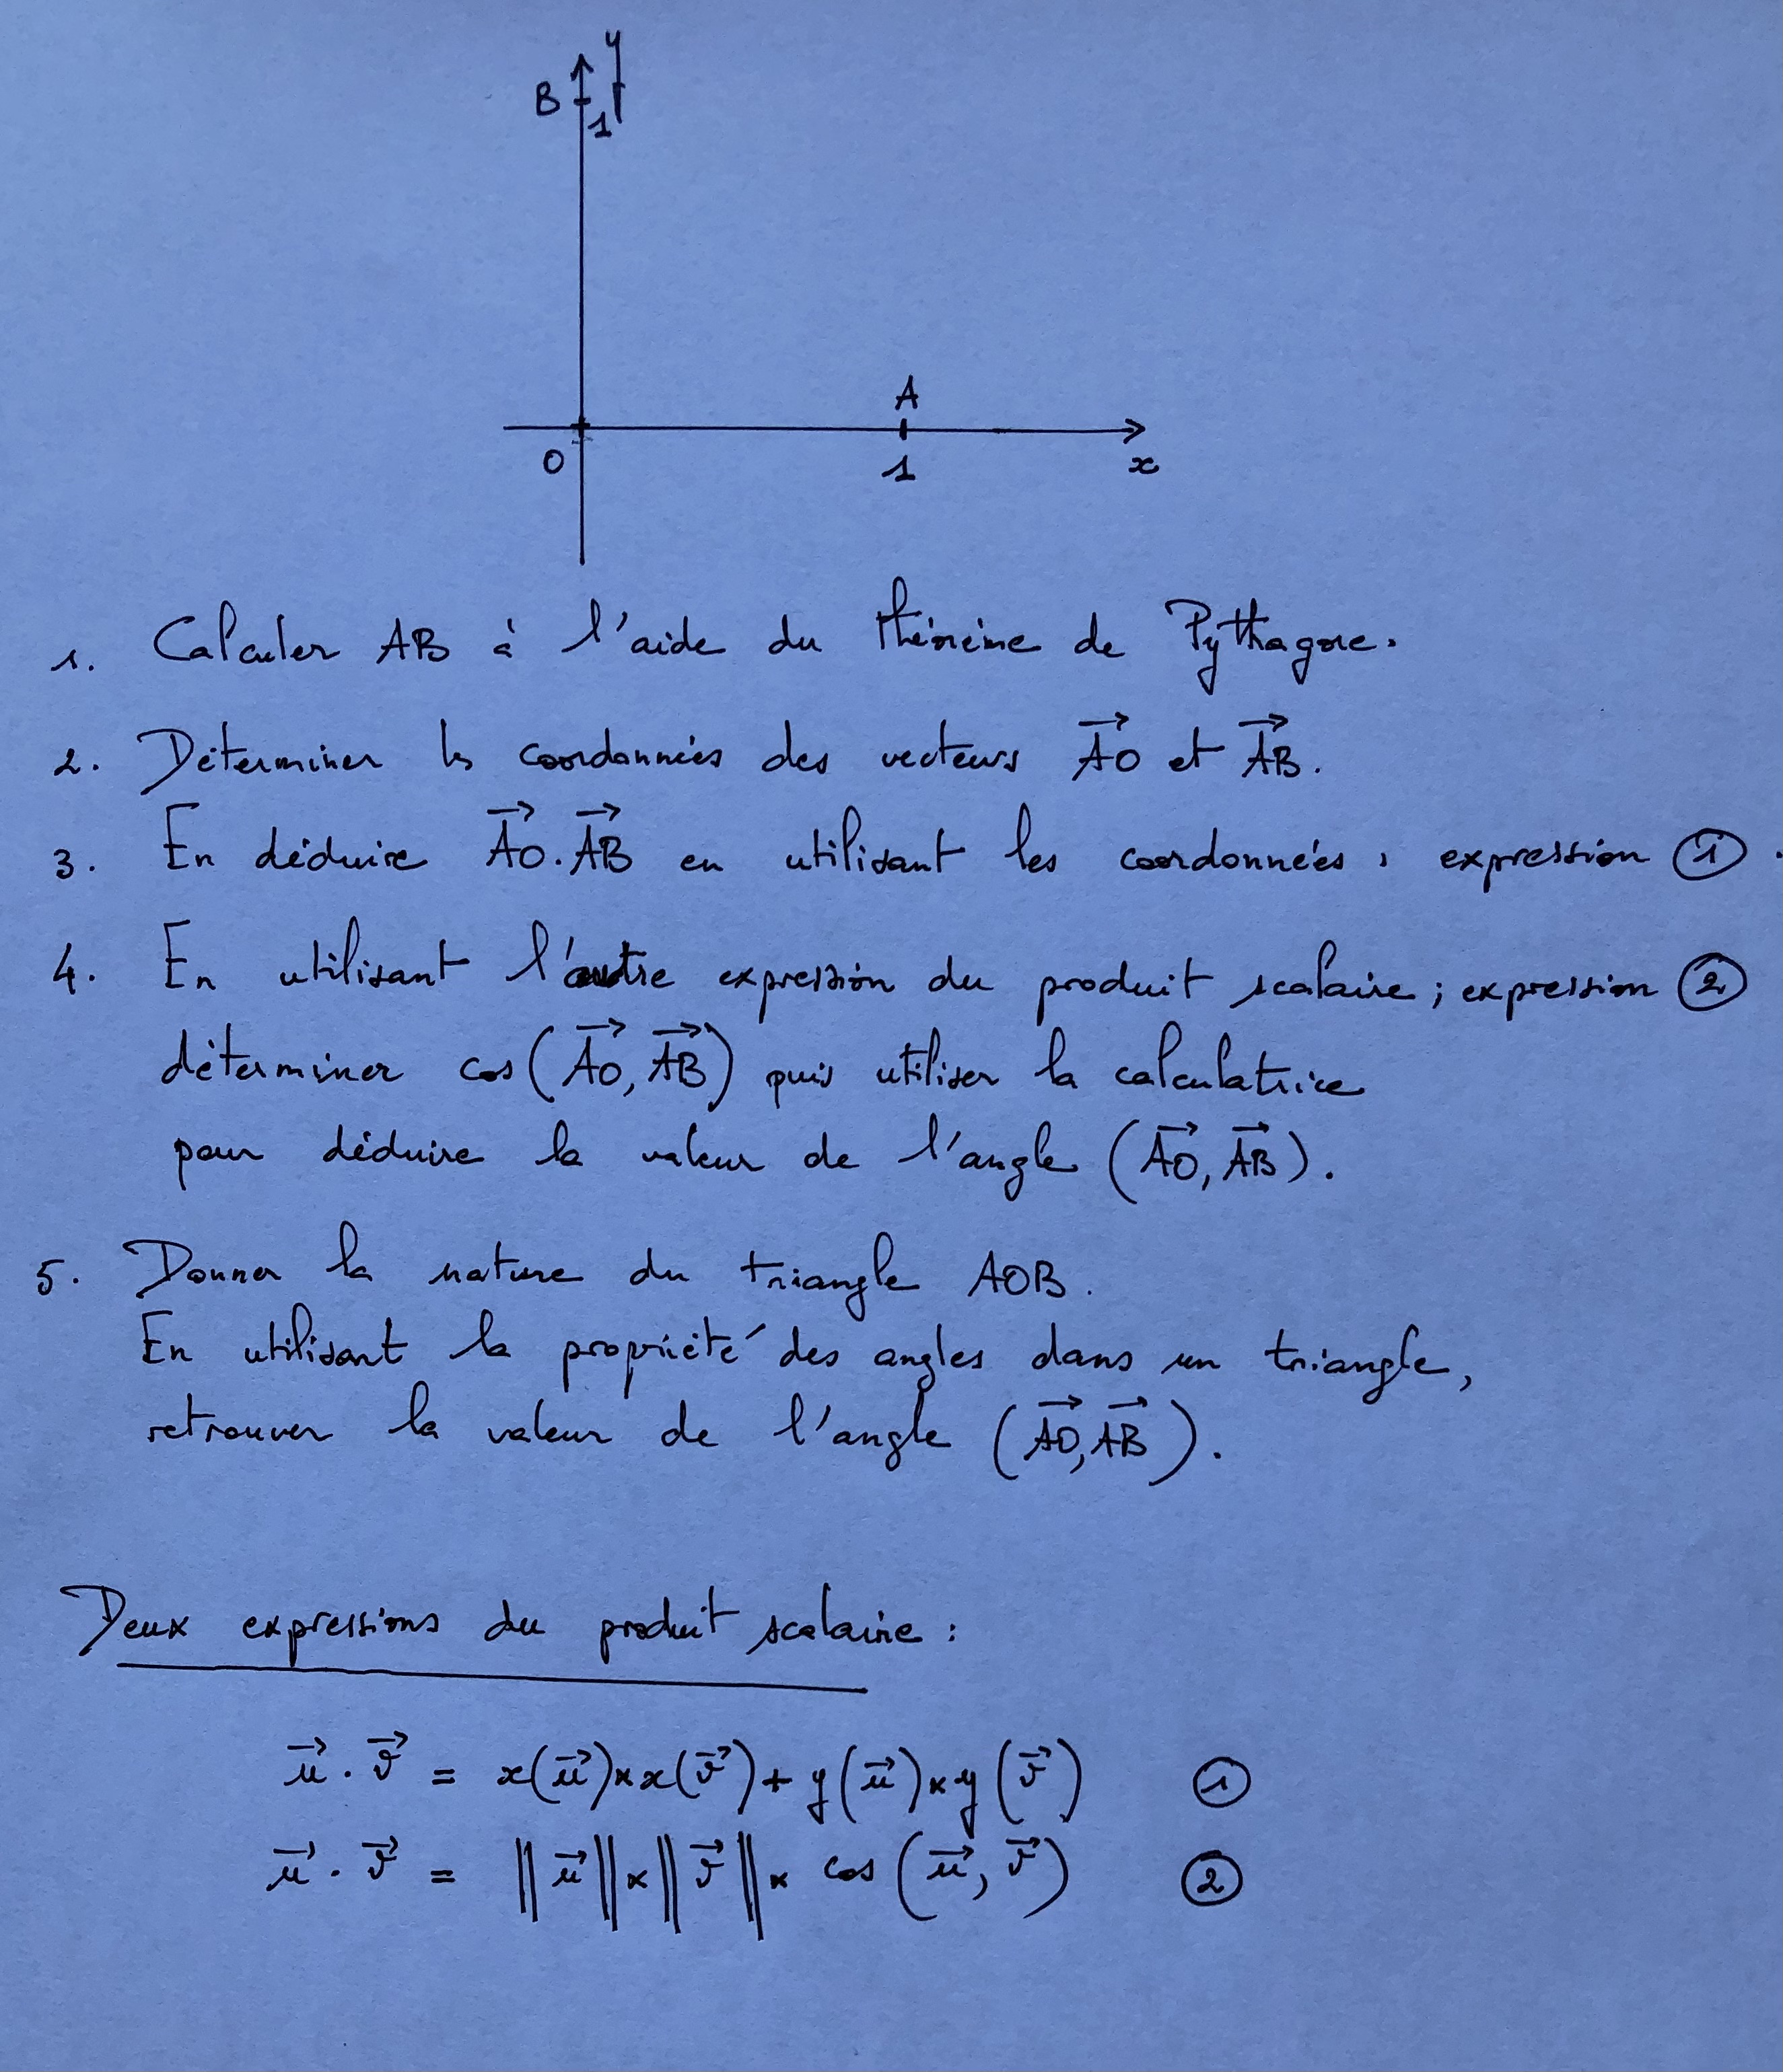 y
B
1
A
O
1
x
1. Calculer AB à l'aide du théorème de Pythagore.
2. Déterminer les coordonnées des vecteurs $\overrightarrow{AO}$ et $\overrightarrow{AB}$.
3. En déduire $\overrightarrow{AO}.\overrightarrow{AB}$ en utilisant les coordonnées, expression ①.
4. En utilisant l'autre expression du produit scalaire ; expression ②
déterminer cos($\overrightarrow{AO}$, $\overrightarrow{AB}$) puis utiliser la calculatrice
pour déduire la valeur de l'angle ($\overrightarrow{AO}$, $\overrightarrow{AB}$).
5. Donner la nature du triangle AOB.
En utilisant la propriété des angles dans un triangle,
retrouver la valeur de l'angle ($\overrightarrow{AO}$, $\overrightarrow{AB}$).
Deux expressions du produit scalaire :
$\vec{u} . \vec{v} = x(\vec{u}) \times x(\vec{v}) + y(\vec{u}) \times y(\vec{v})$ ①
$\vec{u} . \vec{v} = \|\vec{u}\| \times \|\vec{v}\| \times \cos(\vec{u}, \vec{v})$ ②